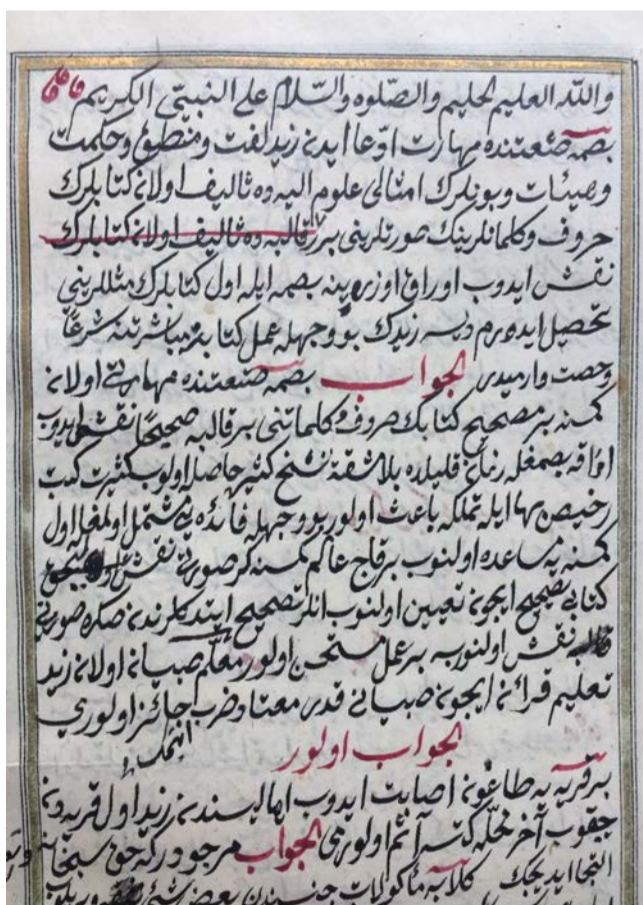 والله العليم الحليم والصلوه والسلام على النبيّ الكريم
بصمه صنعتنده مهارت ادّعا ايدن زيد لغت ومنطق وحكمت
وهيئات وبونلرك امثالى علوم اليه ده تاليف اولان كتابلرك
حروف وكلماتلرينك صورتلرينى برر قالبه ده تاليف اولان كتابلرك
نقش ايدوب اوراق اوزرينه بصمه ايله اول كتابلرك مثللرينى
تحصيل ايدرم ديسه زيدك بو وجهله عمل كتابه مباشرتنه شرعًا
رخصت وارميدر الجواب بصمه صنعتنده مهارتى اولان
كمسنه بر مصحح كتابك حروف وكلماتنى بر قالبه صحيحًا نقش ايدوب
اوراقه بصمغله زمان قليلده بلا مشقة نسخ كثيره حاصله اولوب كثرت كتب
رخيص بها ايله تملكه باعث اولور بو وجهله فائده يى مشتمل اولمغله اول
كمسنه يه مساعده اولنوب بر قاج عالم كمسنه لر صورتى نقش
كتابى تصحيح ايچون تعيين اولنوب انلر تصحيح ايتدكلرندن صكره صورتى
نقش اولنورسه بر عمل مستحسن اولور معلم صبيان اولان زيد
تعليم قرائن ايچون صبيانى قدر معتاد ضرب جائز اولورمى
الجواب اولور
بر قريه يه طاعون اصابت ايدوب اهاليسندن زيد اول قريه دن
چقوب آخر محله كتسه آثم اولورمى الجواب مرجودر كه حق سبحانه
التجا ايديجك كلابه مأكولات جنسندن بعض شئ